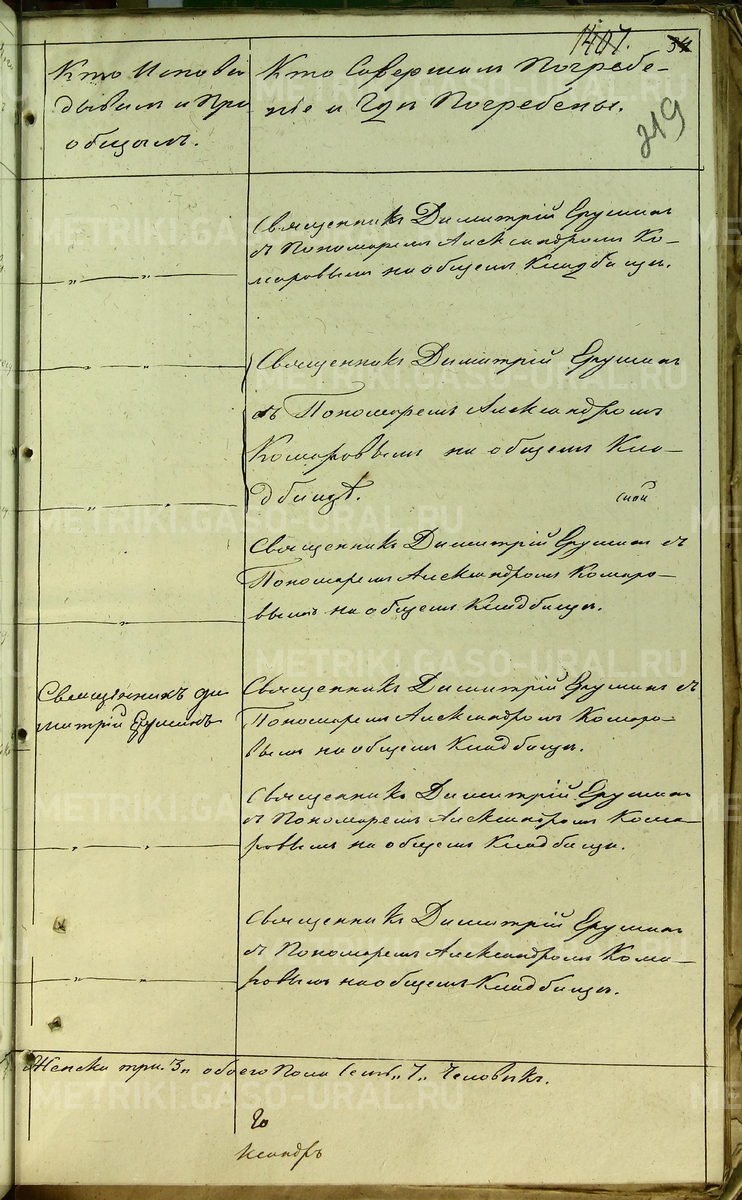 1407. 34
219
Кто Исповѣ
дывалъ и При
общалъ.
Кто Совершалъ Погребе-
ніе и Гдѣ Погребены.
Священникъ Димитрій Ерушинъ
съ Пономаремъ Александромъ Ко-
маровымъ на общемъ Кладбищѣ.
„ „
Священникъ Димитрій Ерушинъ
съ Пономаремъ Александромъ
Комаровымъ на общемъ Кла-
дбищѣ.
„ „
„ „
Священникъ Димитрій Ерушинъ съ
Пономаремъ Александромъ Комаро-
вымъ на общемъ Кладбищѣ.
„
Священникъ Ди
митрій Ерушинъ
Священникъ Димитрій Ерушинъ съ
Пономаремъ Александромъ Комаро-
вымъ на общемъ Кладбищѣ.
Священникъ Димитрій Ерушинъ
съ Пономаремъ Александромъ Кома-
ровымъ на общемъ Кладбищѣ.
„ „
Священникъ Димитрій Ерушинъ
съ Пономаремъ Александромъ Кома-
ровымъ на общемъ Кладбищѣ.
„ „
Женска три „3„ обоего Пола Семь „7„ Человѣкъ.
го
ксандръ
METRIKI.GASO-URAL.RU